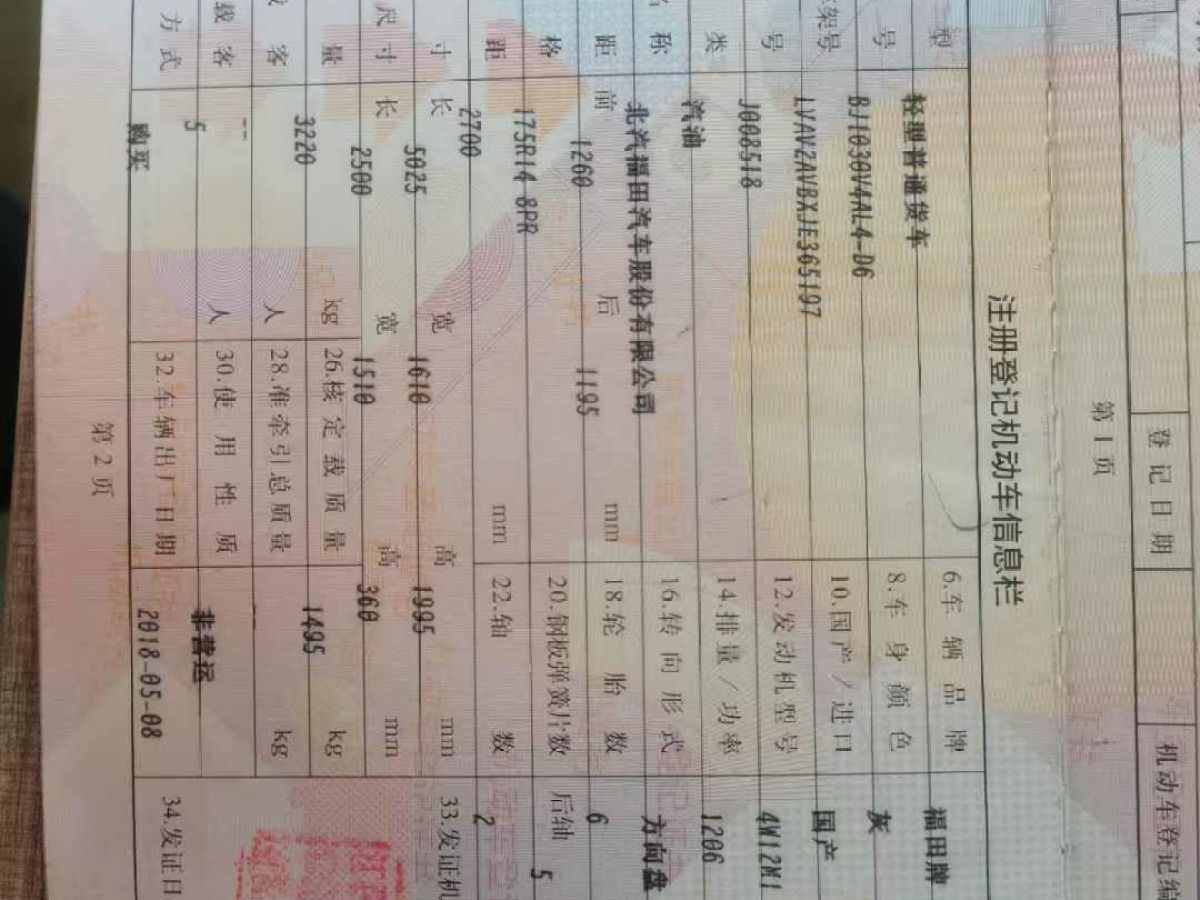 登记日期
机动车登记编
第1页
注册登记机动车信息栏
型 轻型普通货车 6.车辆品牌 福田牌
号 BJ1030V4AL4-D6 8.车身颜色 灰
架号 LVAV2AVBXJE365197 10.国产/进口 国产
号 J008518 12.发动机型号 4W12M1
类 汽油 14.排量/功率 1206
名称 北汽福田汽车股份有限公司 16.转向形式 方向盘
距 前 1260 后 1195 mm 18.轮胎数 6
格 175R14 8PR 20.钢板弹簧片数 后轴 5
距 2700 mm 22.轴数 2
寸 长 5025 宽 1610 高 1995 mm 33.发证机
尺寸 长 2500 宽 1510 高 360 mm
量 3220 kg 26.核定载质量 1495 kg
客 -- 人 28.准牵引总质量 kg
载客 5 人 30.使用性质 非营运
方式 购买 32.车辆出厂日期 2018-05-08 34.发证日
第2页